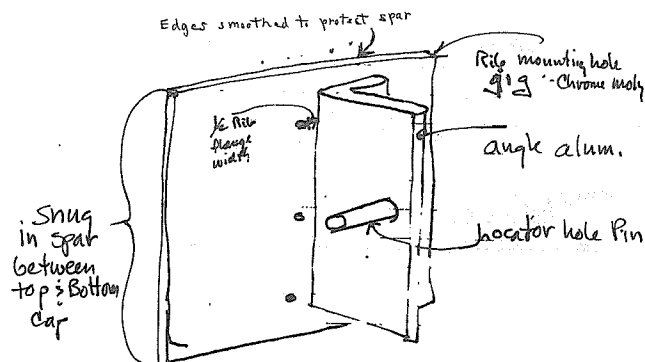 Edges smoothed to protect spar
Rib mounting hole
gig - Chrome moly
½ Rib
flange
width
angle alum.
Locator hole Pin
Snug
in spar
between
top & Bottom
Cap